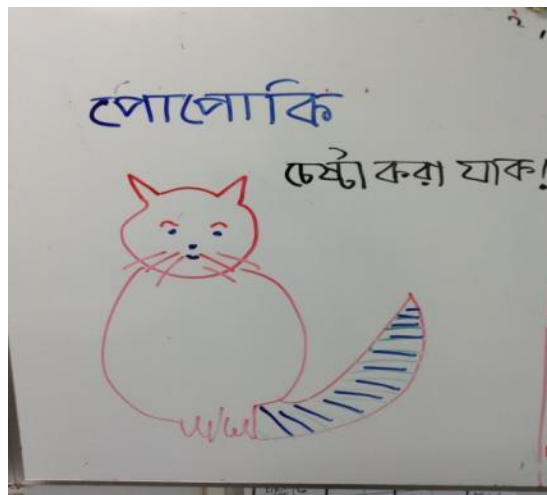 পোপোকি
চেষ্টা করা যাক!